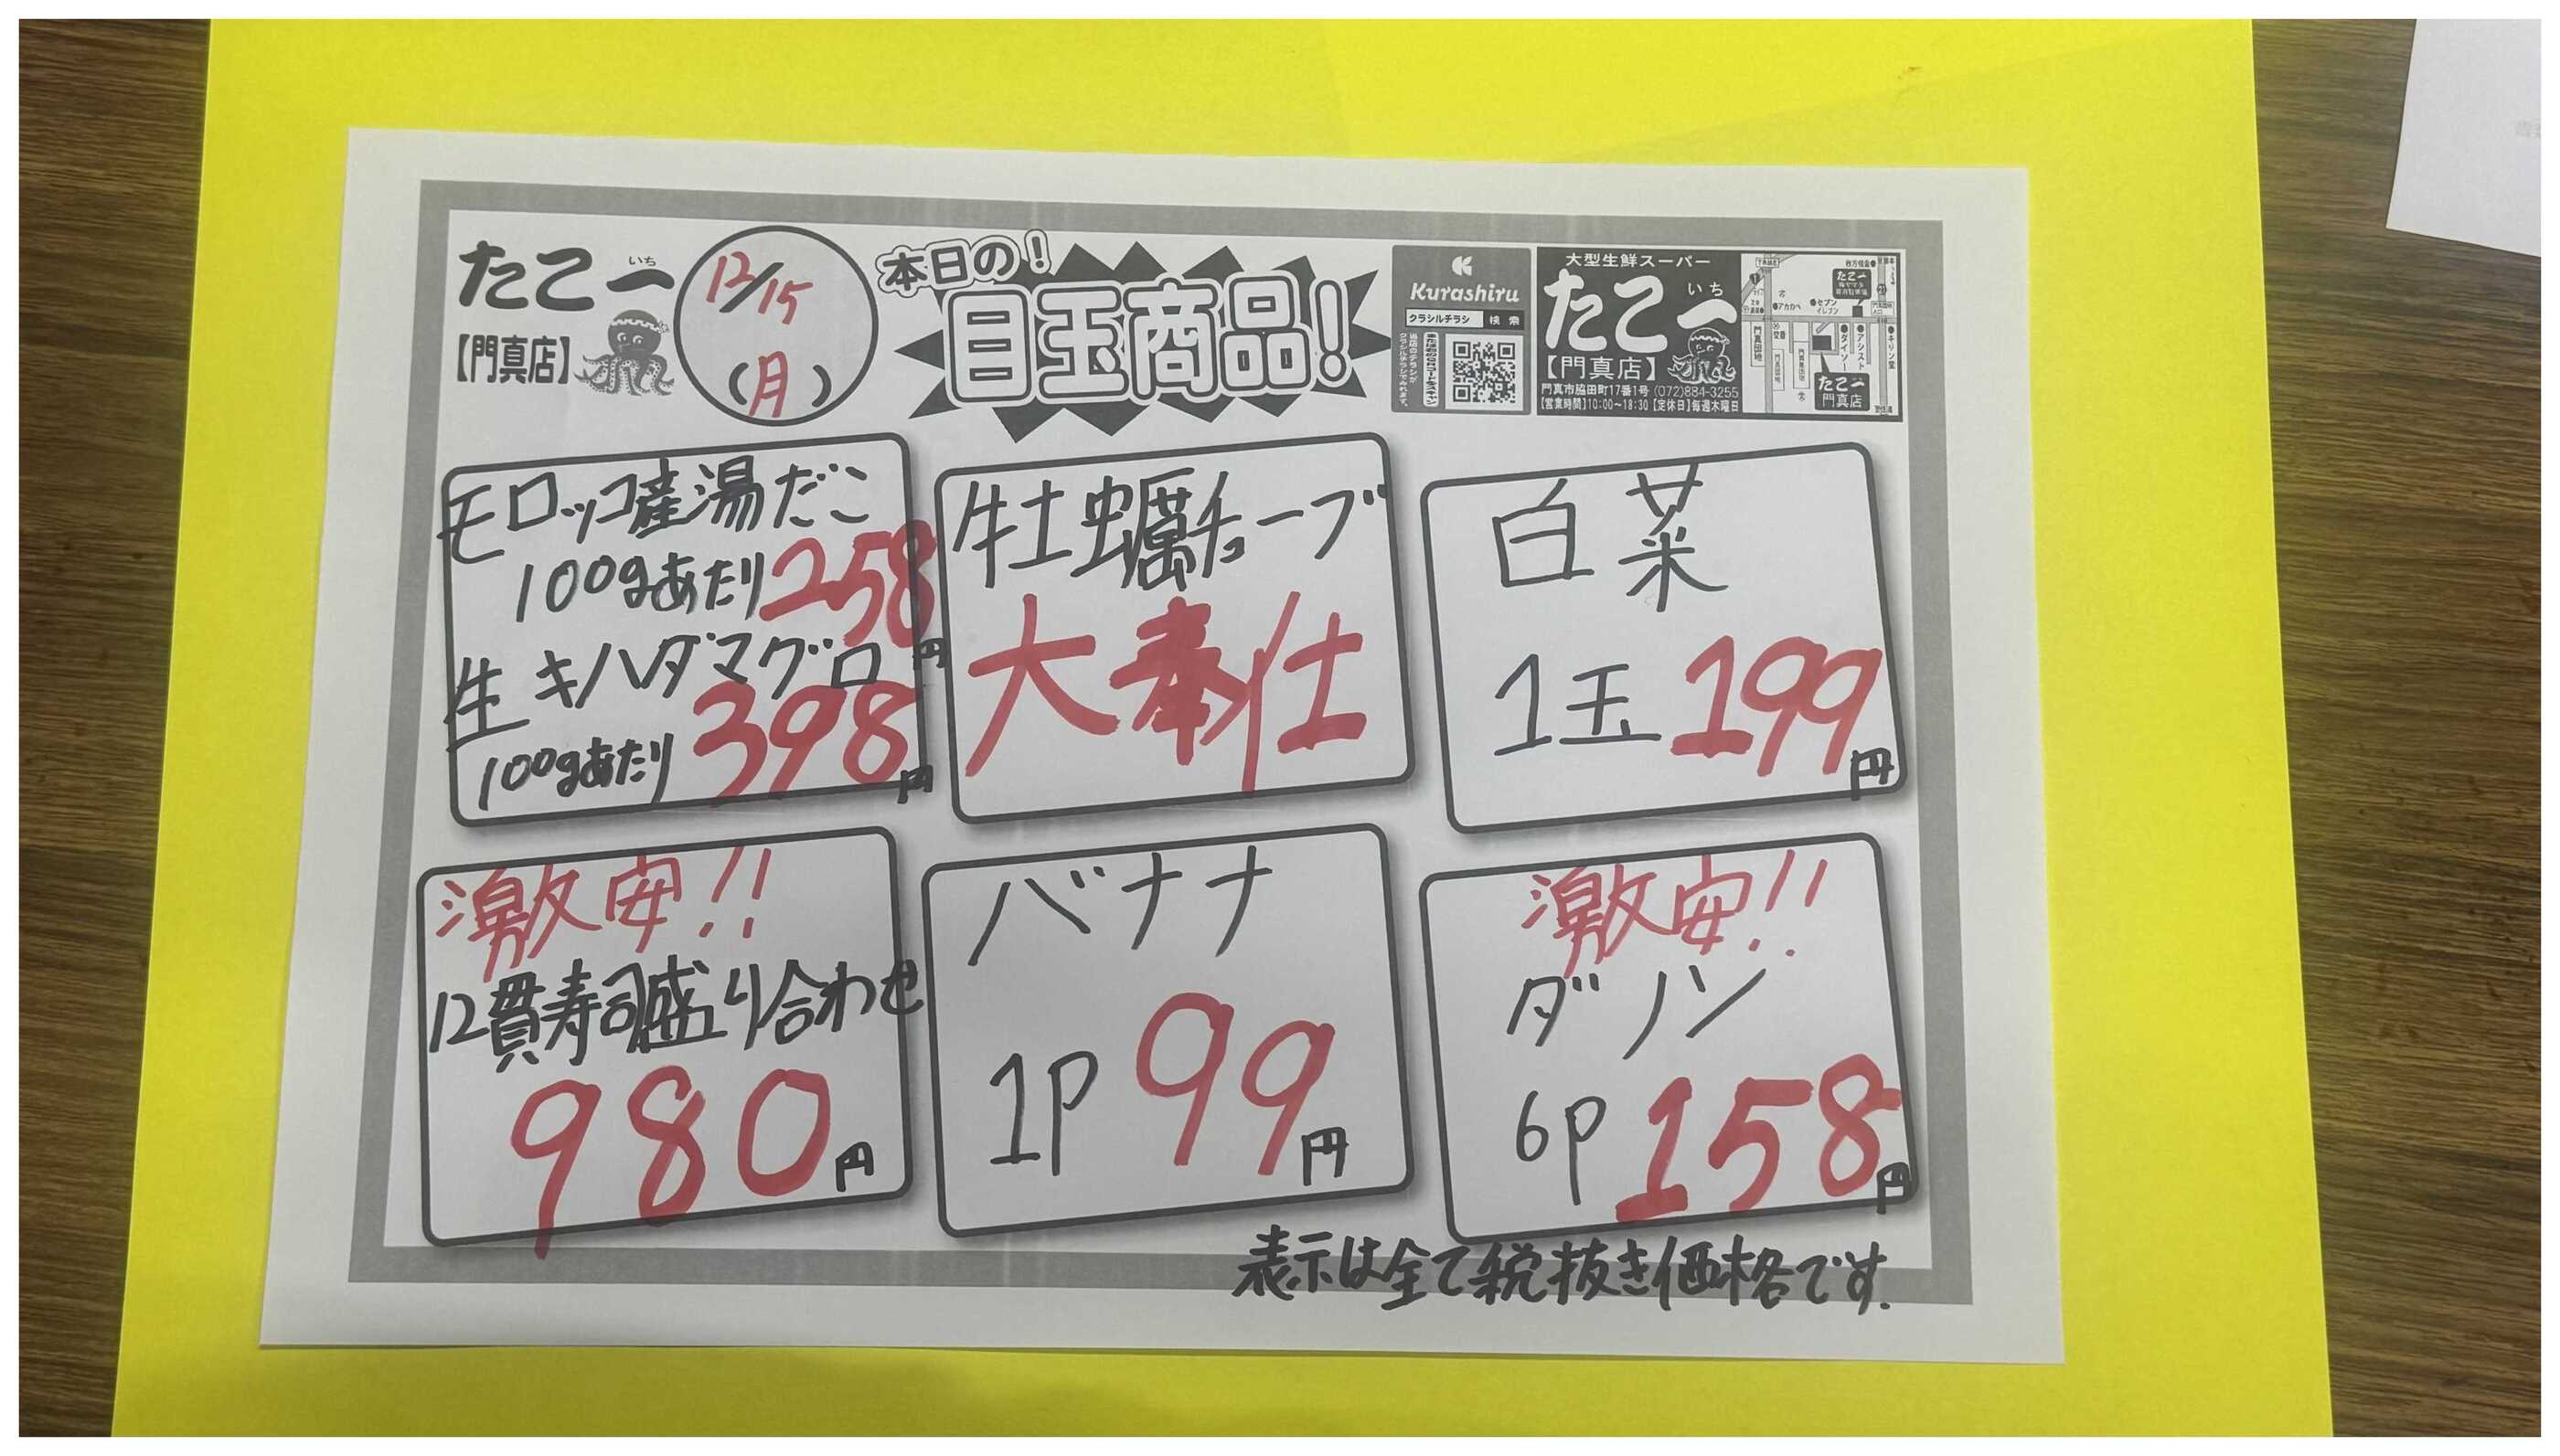 たこ一
いち
【門真店】
12/15
(月)
本日の!
目玉商品!
Kurashiru
クラシルチラシ 検索
大型生鮮スーパー
たこ一
いち
【門真店】
門真市脇田町17番1号 (072)884-3255
【営業時間】10:00〜18:30【定休日】毎週木曜日
たこ一
門真店
モロッコ産湯だこ
100gあたり258円
生キハダマグロ
100gあたり398円
牡蠣チューブ
大奉仕
白菜
1玉199円
激安!!
12貫寿司盛り合わせ
980円
バナナ
1P 99円
激安!!
ダノン
6P 158円
表示は全て税抜き価格です.